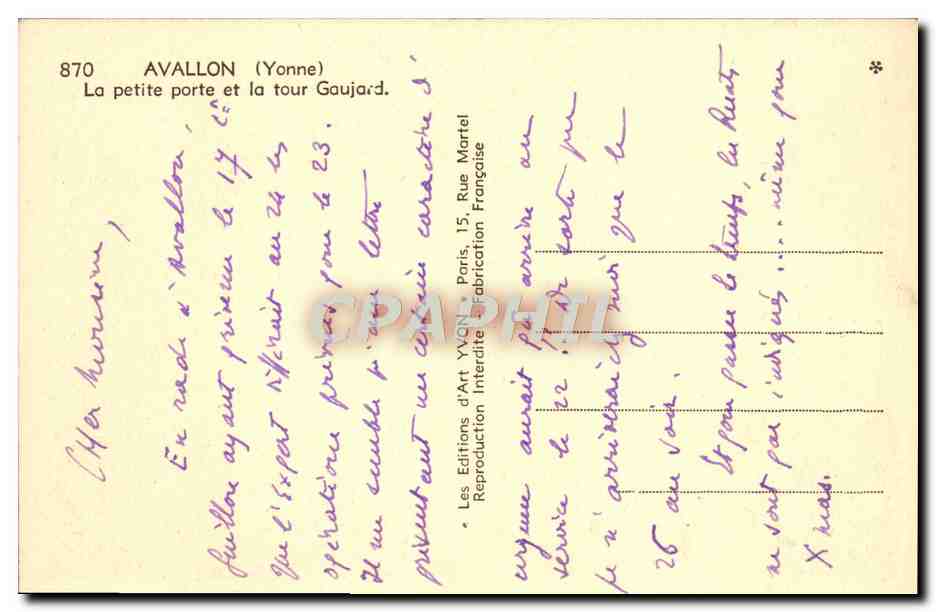 870 AVALLON (Yonne)
La petite porte et la tour Gaujard.
*
Cher Monsieur,
En rade à Avallon,
Guillon ayant prévenu le 17 c^t
que l'Expert différait au 24 les
opérations prévues pour le 23.
Il me semble qu'une lettre
présentant un certain caractère d'
urgence aurait pu arriver au
service le 22, de sorte que
je n'arriverai ici que le
26 au soir.
Et pour passer le temps, les
ne sont pas indiqués .... même pour
Xmas.
• Les Editions d'Art YVON • Paris, 15, Rue Martel
Reproduction Interdite - Fabrication Française
CPAPHIL